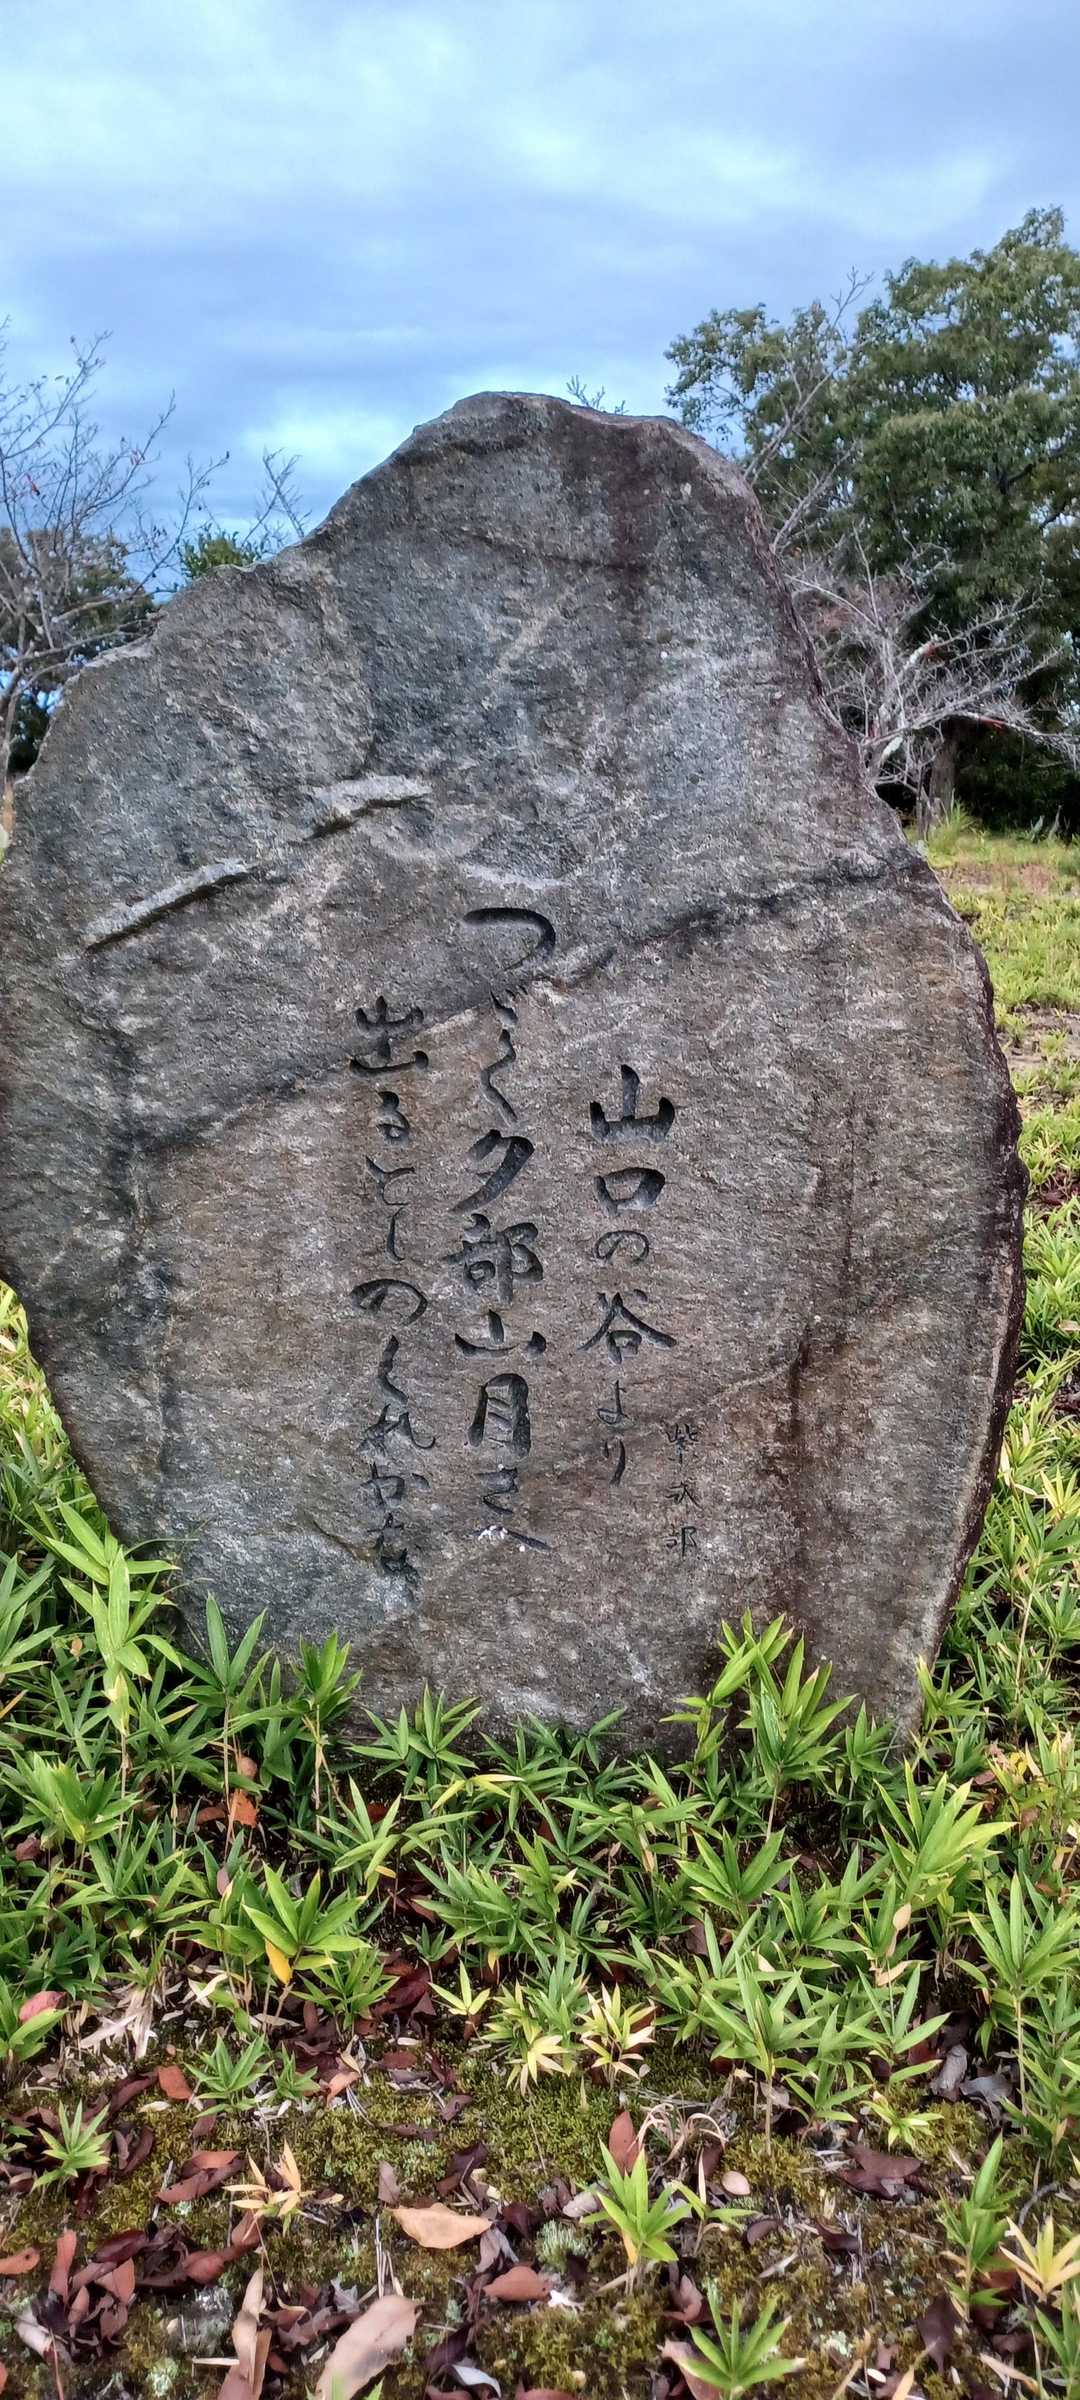 山口の谷より
つゞく夕部山月さへ
出るとしのくれかな
紫水郎